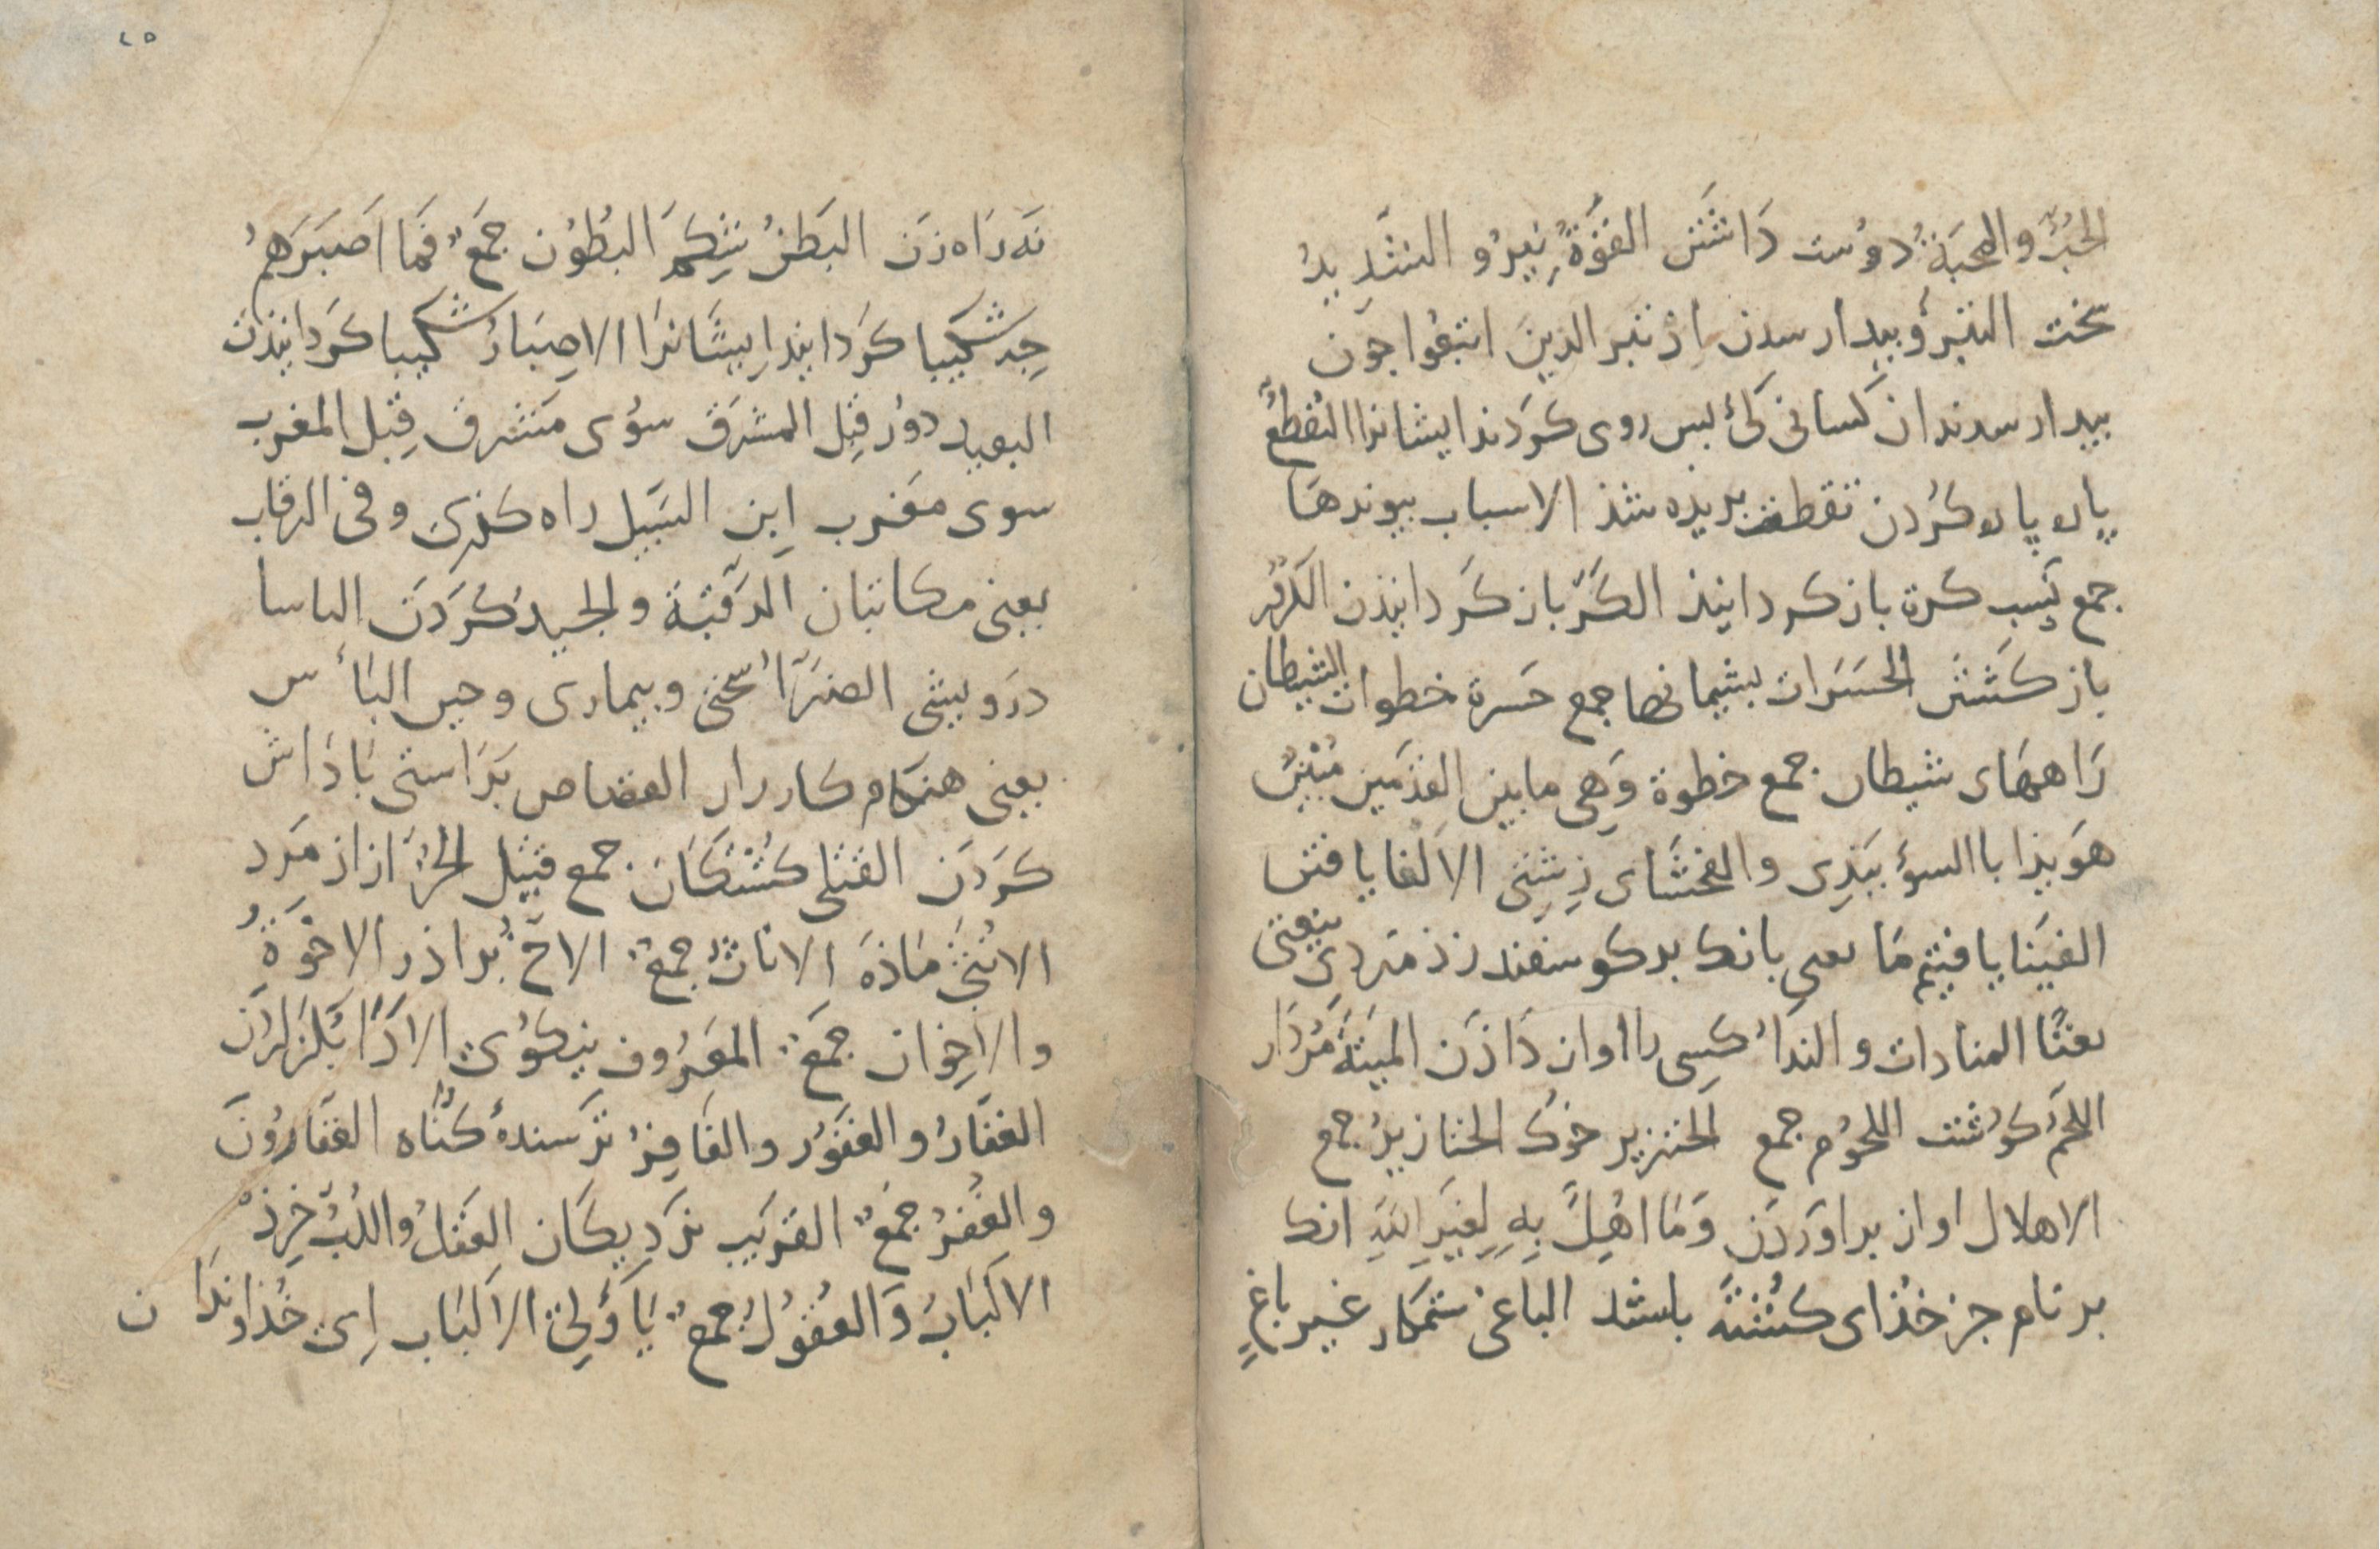 الحُبُّ والمحبَةُ دوُست دَاشتَن القُوَّةُ نِيرُو الشَّدِيدُ
سخت التبرؤُ بيدار سدن اذ تبر الذين اتبعُوا جون
بيدار سدند ان كسانى كى بس روى كرَدند ايشانرا التقطعُ
پاره پاره كرُدن تقطعت بريده شذ الاسباب بيوندهَا
جمع سَبب كرة باز كردانيذ الكَرّ باز كَردانيذن الكرُّ
باز كَشتَن الحَسَرات بشيمانىها جمع حَسرة خطوات الشيطان
رَاههَاى شيطان جمع خطوة وَهِى مابين القدَمَين مُبِينٌ
هوَيذا باالسوُء ببَدِى والفحشَاى زِشتِى الالفا يافتن
الفَينا يافتيم مَا يعنى بانك بركوسفند زند مَردى ينعِق
نعقًا المنادات والنداُ كسِى را اواز دَاذَن الميتَةَ مُردَار
اللحَمُ كوُشت اللحوُم جمع الخنزير خوك الخنازيرُ جمع
الاهلال اواز براوَردَن وَمَا اُهِلَّ بِهِ لِغَيرِ اللهِ انك
بر نام جز خذاى كشتَه باشد الباغى ستمكار غير باغٍ
نَه رَاه زَن البَطنُ شِكمَ البُطوُن جمَعٌ فمَا اَصبَرَهمُ
جِه شكيبا كرَدانيد ايشَانرَا الاِصبَارُ شكيبا كرَدانيذن
البعيد دوُر قِبل المشرَق سوُى مَشرق قِبل المغرب
سوى مغرب اِبن السَّبيل راه كذرى وفى الرقاب
يعنى مكاتبان الرَّقبَة والجيد كرَدَن الباسا
درَويشى الضَرّاُ سختى وبيمارى وحين البَأس
يعنى هنكَام كارزار القصَاص برَاستى پَادَاش
كرَدَن القتلى كُشتكَان جمع قتيل الحُرُّ ازاذ مَرد
الاُنثَى مَاذَه الاناث جمعٌ الاخُ برَاذر الاخوَةُ
والاِخوَان جمعٌ المعَرُوف نيكوُى الادَاُ بكزَاردَن
الغفَارُ والغفوُر والغَافِرُ بوَشندۀ كنَاه الغفَارُونَ
والغُفرُ جمعٌ القرَيب نزدِيكَان العَقلُ واللُبُّ خِرِذ
الالبَابُ وَالعُقوُلُ جمعٌ يَا اوُلِى الالبَاب اِى خُذاوندَان
٢٥